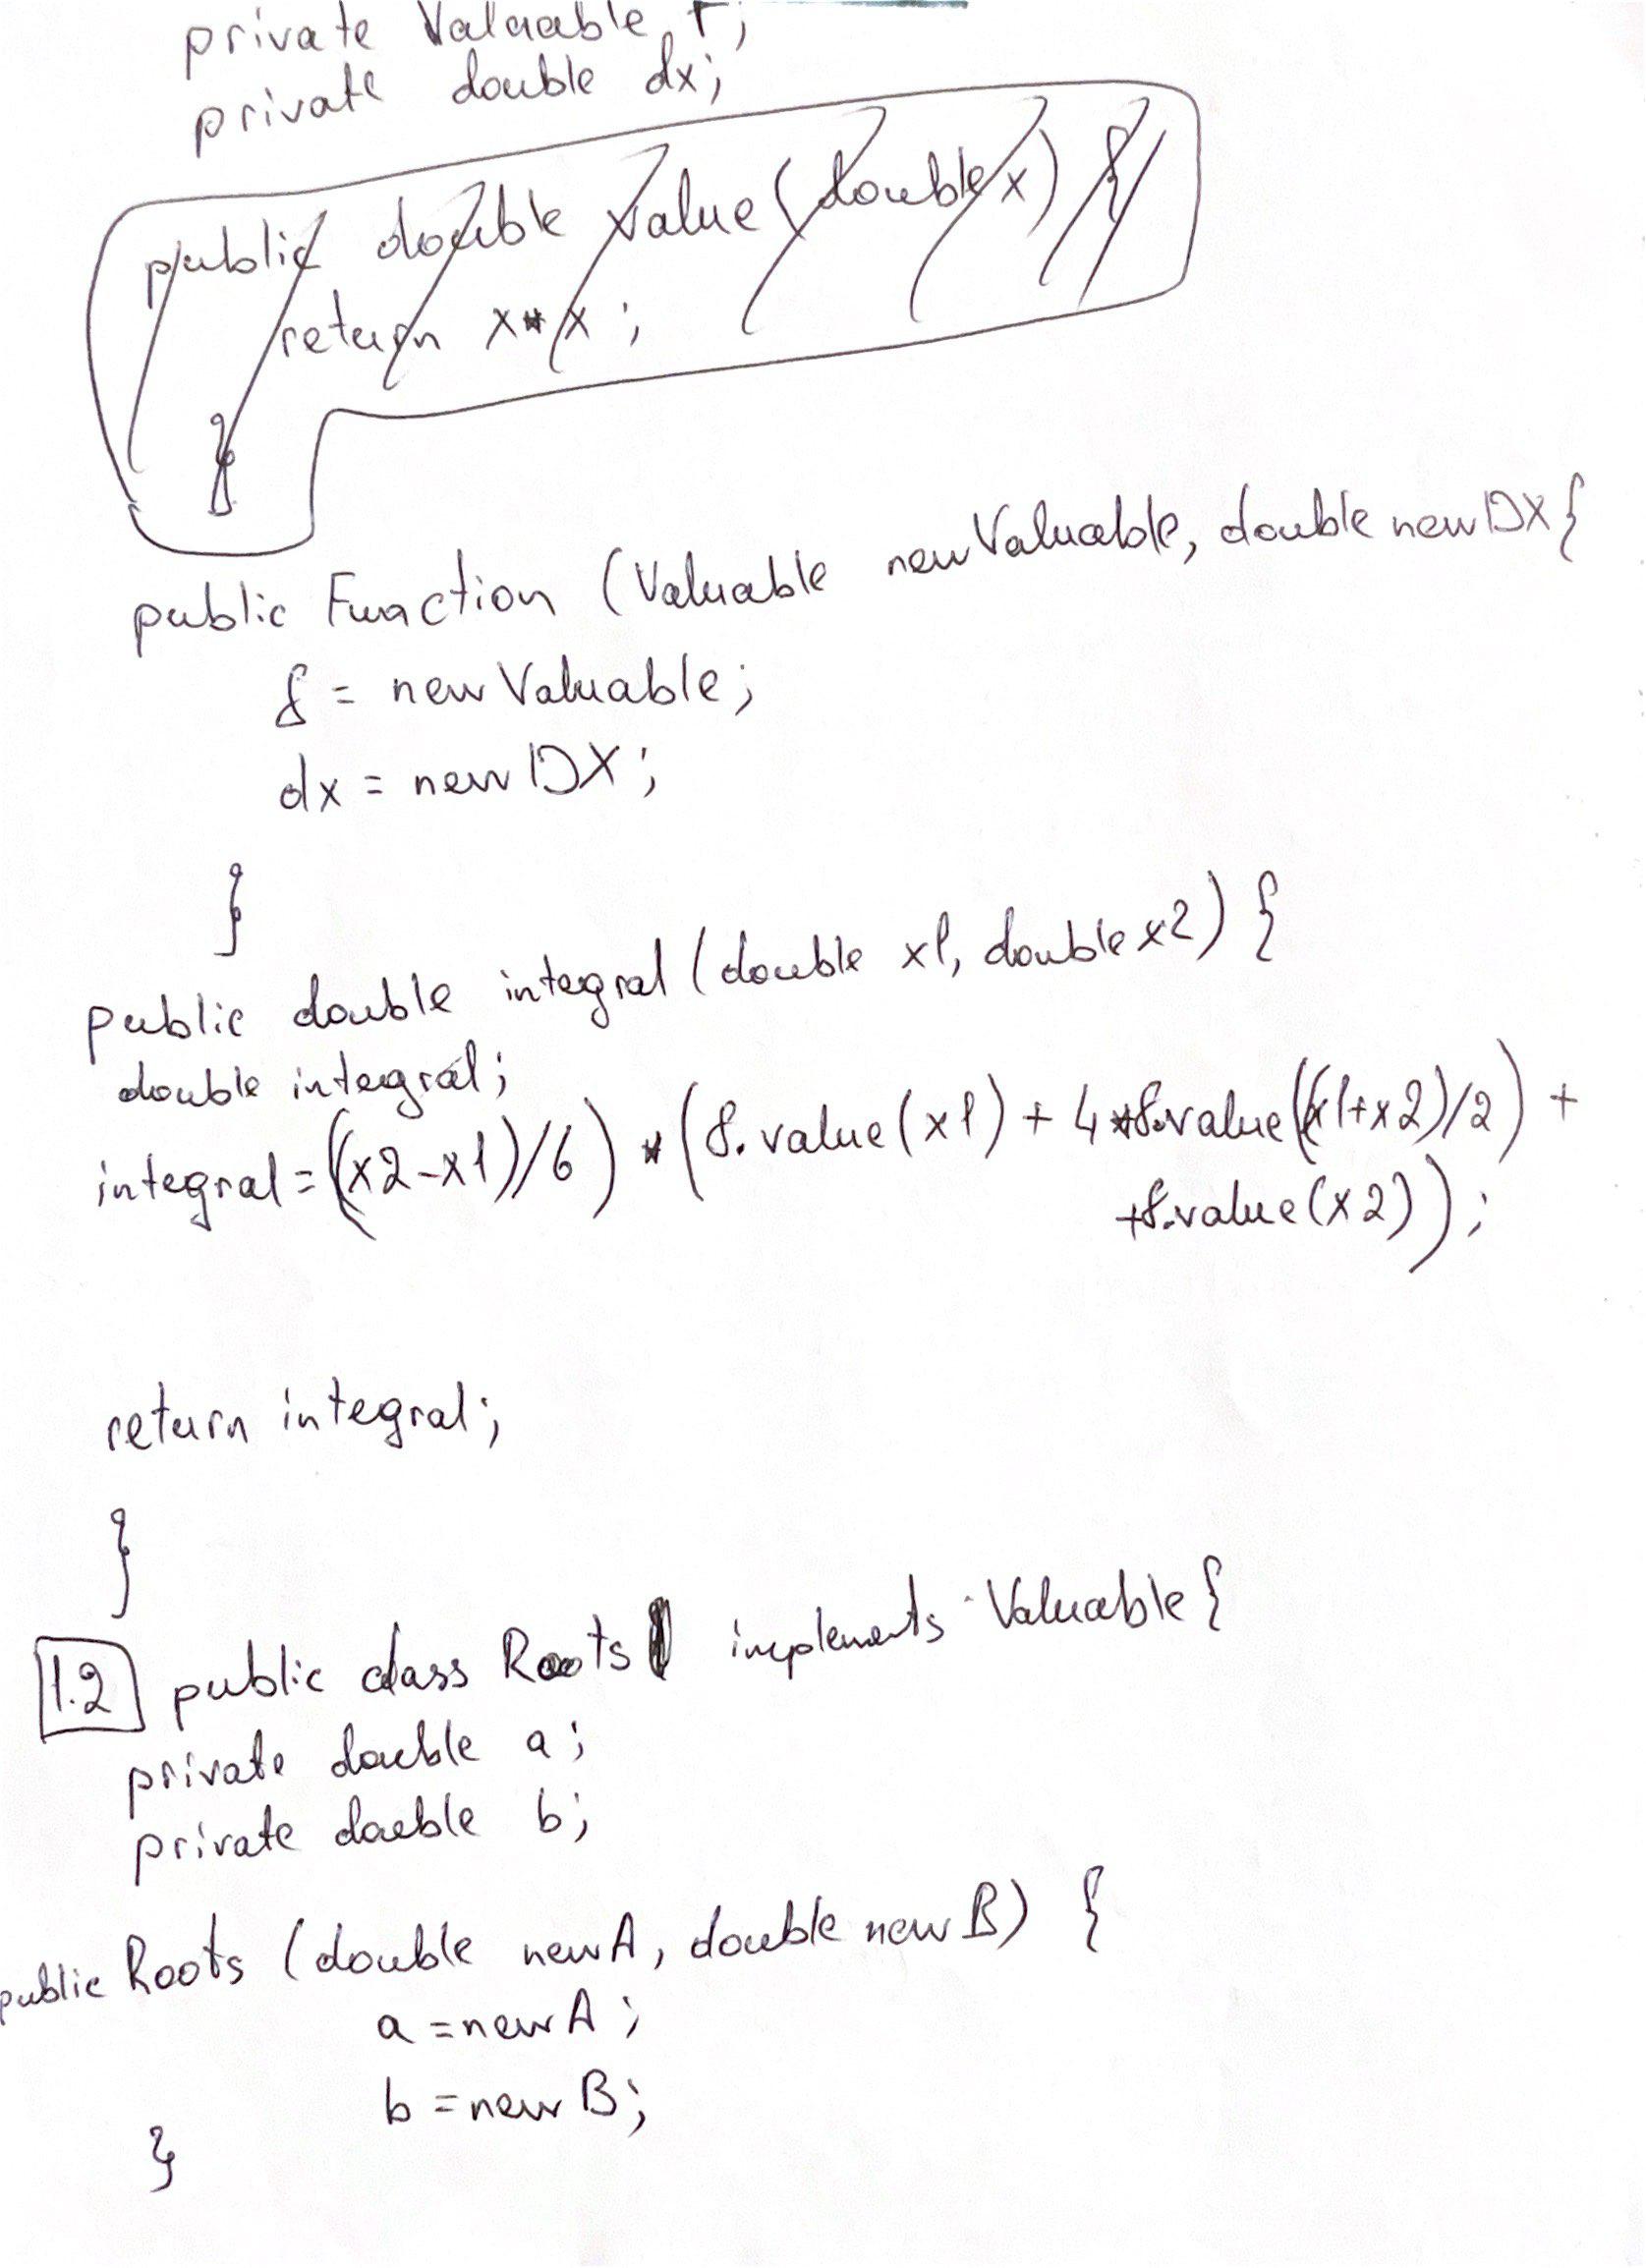 private Valuable f;
private double dx;
public double value(double x) {
return x*x;
}
public Function (Valuable newValuable, double newDX {
f = newValuable;
dx = newDX;
}
public double integral (double x1, double x2) {
double integral;
integral = ((x2-x1)/6) * (f.value(x1) + 4*f.value((x1+x2)/2) +
+f.value(x2));
return integral;
}
1.2 public class Roots implements Valuable {
private double a;
private double b;
public Roots (double newA, double newB) {
a = newA;
b = newB;
}